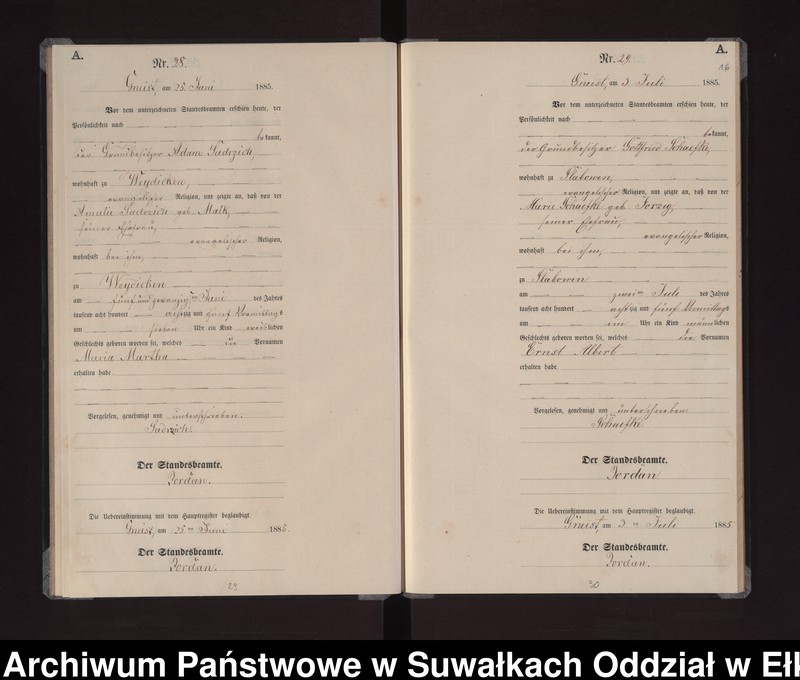 A.
Nr. 28.
Gneist, am 25. Juni 1885.
Vor dem unterzeichneten Standesbeamten erschien heute, der
Persönlichkeit nach
bekannt,
der Grundbesitzer Adam
wohnhaft zu Weydicken,
evangelischer Religion, und zeigte an, daß von der
Amalie geb.
seiner Ehefrau,
evangelischer Religion,
wohnhaft bei ihm,
zu Weydicken
am fünfundzwanzigten Juni des Jahres
tausend acht hundert achtzig und fünf Vormittags
um sieben Uhr ein Kind weiblichen
Geschlechts geboren worden sei, welches die Vornamen
Maria Martha
erhalten habe
Vorgelesen, genehmigt und unterschrieben.
Der Standesbeamte.
Jordan.
Die Uebereinstimmung mit dem Hauptregister beglaubigt.
Gneist, am 25ten Juni 1885.
Der Standesbeamte.
Jordan.
29
A.
16
Nr. 29.
Gneist, am 3. Juli 1885.
Vor dem unterzeichneten Standesbeamten erschien heute, der
Persönlichkeit nach
bekannt,
der Grundbesitzer Gottfried
wohnhaft zu
evangelischer Religion, und zeigte an, daß von der
Marie geb. Jorzig,
seiner Ehefrau,
evangelischer Religion,
wohnhaft bei ihm,
zu
am zweiten Juli des Jahres
tausend acht hundert achtzig und fünf Vormittags
um ein Uhr ein Kind männlichen
Geschlechts geboren worden sei, welches die Vornamen
Ernst Albert
erhalten habe
Vorgelesen, genehmigt und unterschrieben
Der Standesbeamte.
Jordan
Die Uebereinstimmung mit dem Hauptregister beglaubigt.
Gneist, am 3. ten Juli 1885
Der Standesbeamte.
Jordan.
30
Archiwum Państwowe w Suwałkach Oddział w Ełk